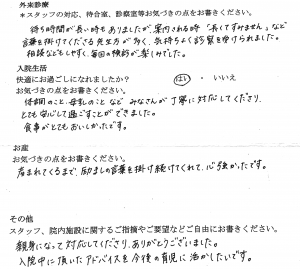 外来診療
＊スタッフの対応、待合室、診察室等お気づきの点をお書きください。
待ち時間が長い時もありましたが、案内される時「長くてすみません」など
言葉を掛けてくださる先生方が多く、気持ちよく診察を受けられました。
相談などもしやすく、毎回の検診が楽しみでした。
入院生活
快適にお過ごしになれましたか？ はい ・ いいえ
お気づきの点をお書きください。
体調のこと、母乳のこと など みなさんが丁寧に対応してくださり、
とても安心して過ごすことができました。
食事がとてもおいしかったです。
お産
お気づきの点をお書きください。
産まれてくるまで、励ましの言葉を掛け続けてくれて、心強かったです。
その他
スタッフ、院内施設に関するご指摘やご要望などご自由にお書きください。
親身になって対応してくださり、ありがとうございました。
入院中に頂いたアドバイスを今後の育児に活かしたいです。